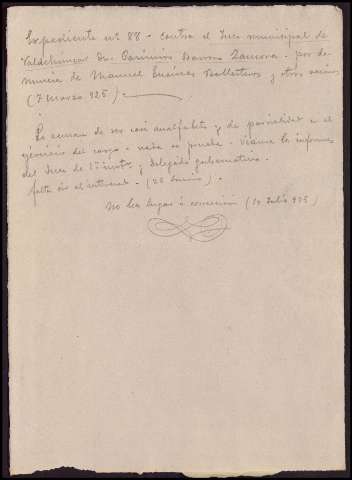 Expediente nº 88 - contra el Juez municipal de
Valdehúncar Don Casimiro Barroso Zamora - por de-
nuncia de Manuel Encinas Ballesteros y otros vecinos
(7 Marzo 925)
Se acusan de ser casi analfabeto y de parcialidad en el
ejercicio del cargo - nada se prueba - véanse los informes
del Juez de 1ª instª y delegado gubernativo.
falta oir al interesado. (26 Junio).
No ha lugar a corrección (10 Julio 925)